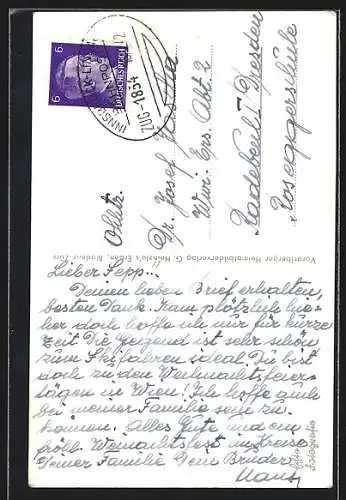 6 DEUTSCHES REICH 6
INNSBRUCK-LINDAU
BAHNPOST
ZUG 1854
Obltz.
Dr. Josef
Wir. Ers. Abt. 2
Radebeul-Dresden
Roseggerschule
Vorarlberger Heimatbilderverlag G. Heinzle's Erben, Bludenz-Zürs
Lieber Sepp...
Deinen lieben Brief erhalten,
besten Dank. Kam plötzlich hie-
her doch hoffe ich nur für kurze
Zeit. Die Gegend ist sehr schön
zum Skifahren ideal. Du bist
doch zu den Weihnachtsfeier-
tagen in Wien! Ich hoffe auch
bei meiner Familie sein zu
können. Alles Gute und ein
fröhl. Weihnachtsfest im Kreise
Deiner Familie Dein Bruder
Hans
Echte
Fotografie